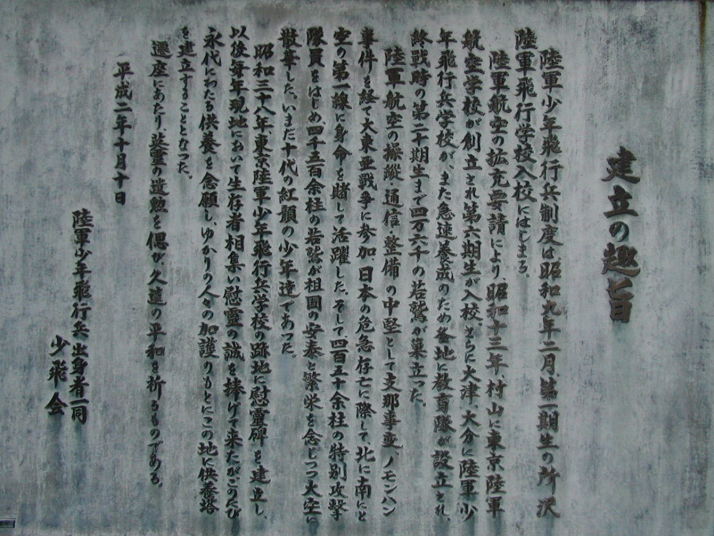 建立の趣旨
陸軍少年飛行兵制度は昭和九年二月、第一期生の所沢
陸軍飛行学校入校にはじまる。
陸軍航空の拡充要請により昭和十三年村山に東京陸軍
航空学校が創立され第六期生が入校、さらに大津・大分に陸軍少
年飛行兵学校が、また急速養成のため各地に教育隊が設立され、
終戦時の第二十期生まで四万六千の若鷲が巣立った。
陸軍航空の操縦・通信・整備の中堅として支那事変、ノモンハン
事件を経て大東亜戦争に参加、日本の危急存亡に際して、北に南にと
空の第一線に身命を賭して活躍した。そして四百五十余柱の特別攻撃
隊員をはじめ四千五百余柱の若鷲が祖国の安泰と繁栄を念じつつ大空に
散華した。いまだ十代の紅顔の少年達であった。
昭和三十八年、東京陸軍少年飛行兵学校の跡地に慰霊碑を建立し、
以後毎年現地において生存者相集い慰霊の誠を捧げて来たがこのたび
永代にわたる供養を念願し、ゆかりの人々の加護のもとにこの地に供養塔
を建立することとなった。
遷座にあたり、英霊の遺勲を偲び、久遠の平和を祈るものである。
平成二年十月十日
陸軍少年飛行兵出身者一同
少飛会